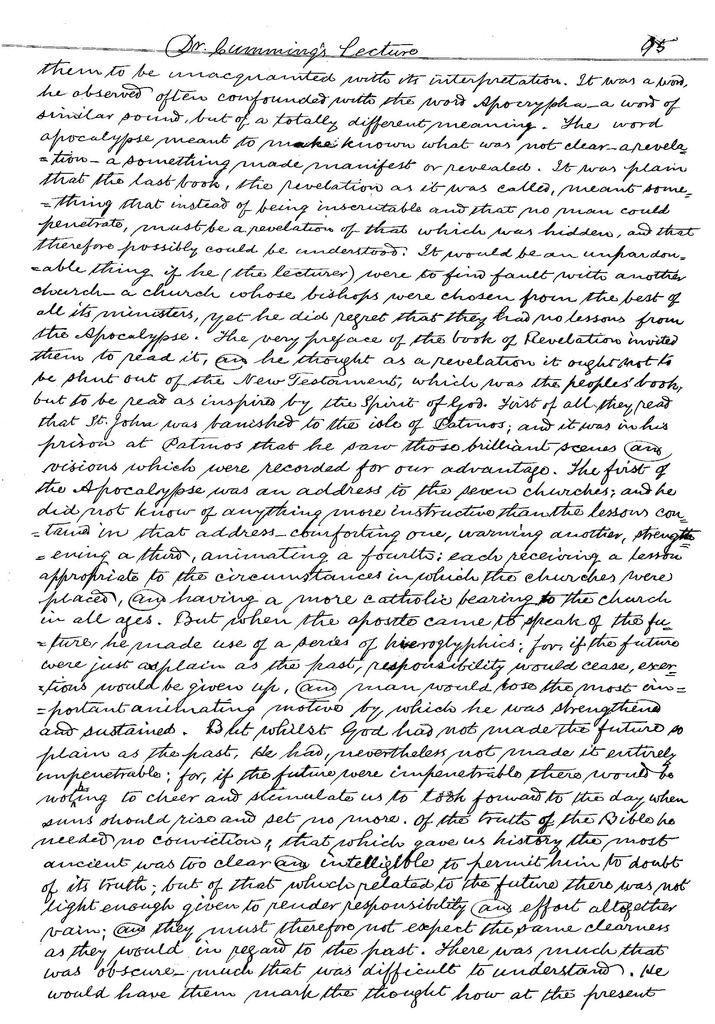 Dr. Cumming's Lecture 95
them to be unacquainted with its interpretation. It was a word,
he observed often confounded with the word Apocrypha—a word of
similar sound, but of a totally different meaning. The word
apocalypse meant to make known what was not clear—a revela=
=tion—a something made manifest or revealed. It was plain
that the last book, the revelation as it was called, meant some=
=thing that instead of being inscrutable and that no man could
penetrate, must be a revelation of that which was hidden, and that
therefore possibly could be understood. It would be an unpardon=
=able thing if he (the lecturer) were to find fault with another
church—a church whose bishops were chosen from the best of
all its ministers, yet he did regret that they had no lessons from
the Apocalypse. The very preface of the book of Revelation invited
them to read it, and he thought as a revelation it ought not to
be shut out of the New Testament, which was the peoples' book,
but to be read as inspired by the Spirit of God. First of all they read
that St. John was banished to the isle of Patmos; and it was in his
prison at Patmos that he saw those brilliant scenes and
visions which were recorded for our advantage. The first of
the Apocalypse was an address to the seven churches; and he
did not know of anything more instructive than the lessons con=
=tained in that address—comforting one, warning another, strength
=ening a third, animating a fourth; each receiving a lesson
appropriate to the circumstances in which the churches were
placed, and having a more catholic bearing to the church
in all ages. But when the apostle came to speak of the fu=
=ture, he made use of a series of hieroglyphics; for, if the future
were just as plain as the past, responsibility would cease, exer=
=tions would be given up, and man would lose the most im=
=portant animating motive by which he was strengthened
and sustained. But whilst God had not made the future so
plain as the past, He had, nevertheless not made it entirely
impenetrable; for, if the future were impenetrable there would be
nothing to cheer and stimulate us to look forward to the day when
suns should rise and set no more. Of the truth of the Bible he
needed no conviction; that which gave us history the most
ancient was too clear and intelligible to permit him to doubt
of its truth; but of that which related to the future there was not
light enough given to render responsibility and effort altogether
vain; and they must therefore not expect the same clearness
as they would in regard to the past. There was much that
was obscure—much that was difficult to understand. He
would have them mark the thought how at the present